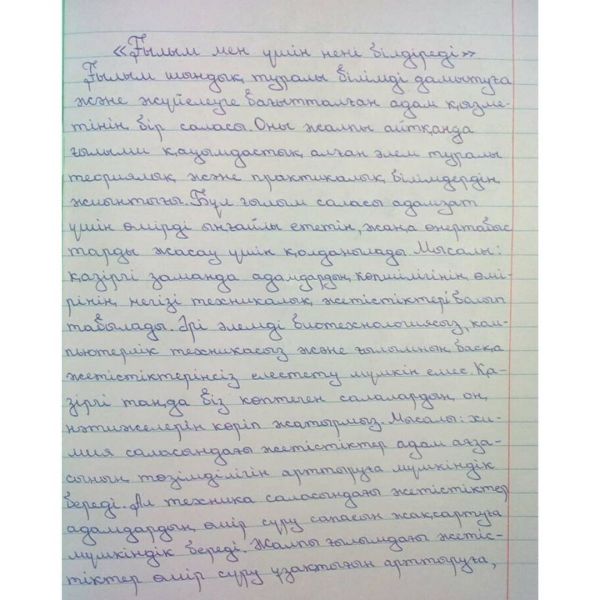 «Ғылым мен үшін нені білдіреді»
Ғылым шындық туралы білімді дамытуға
және жүйелеуге бағытталған адам қызме-
тінің бір саласы. Оны жалпы айтқанда
ғылыми қауымдастық алған әлем туралы
теориялық және практикалық білімдердің
жиынтығы. Бұл ғылым саласы адамзат
үшін өмірді ыңғайлы ететін, жаңа өнертабыс
тарды жасау үшін қолданылады Мысалы:
қазіргі заманда адамдардың көпшілігінің өмі-
рінің негізі техникалық жетістіктері балып
табылады. Әрі әлемді биотехнологиясыз, ком-
пьютерлік техникасыз және ғылымның басқа
жетістіктерінсіз елестету мүмкін емес Қа-
зіргі таңда біз көптеген салалардың оң
нәтижелерін көріп жатырмыз. Мысалы: хи-
мия саласындағы жетістіктер адам ағза-
сының төзімділігін арттыруға мүмкіндік
береді. Ал техника саласындағы жетістіктер
адамдардың өмір сүру сапасын жақсартуға
мүмкіндік береді. Жалпы ғылымдағы жетіс-
тіктер өмір сүру ұзақтығын арттыруға,